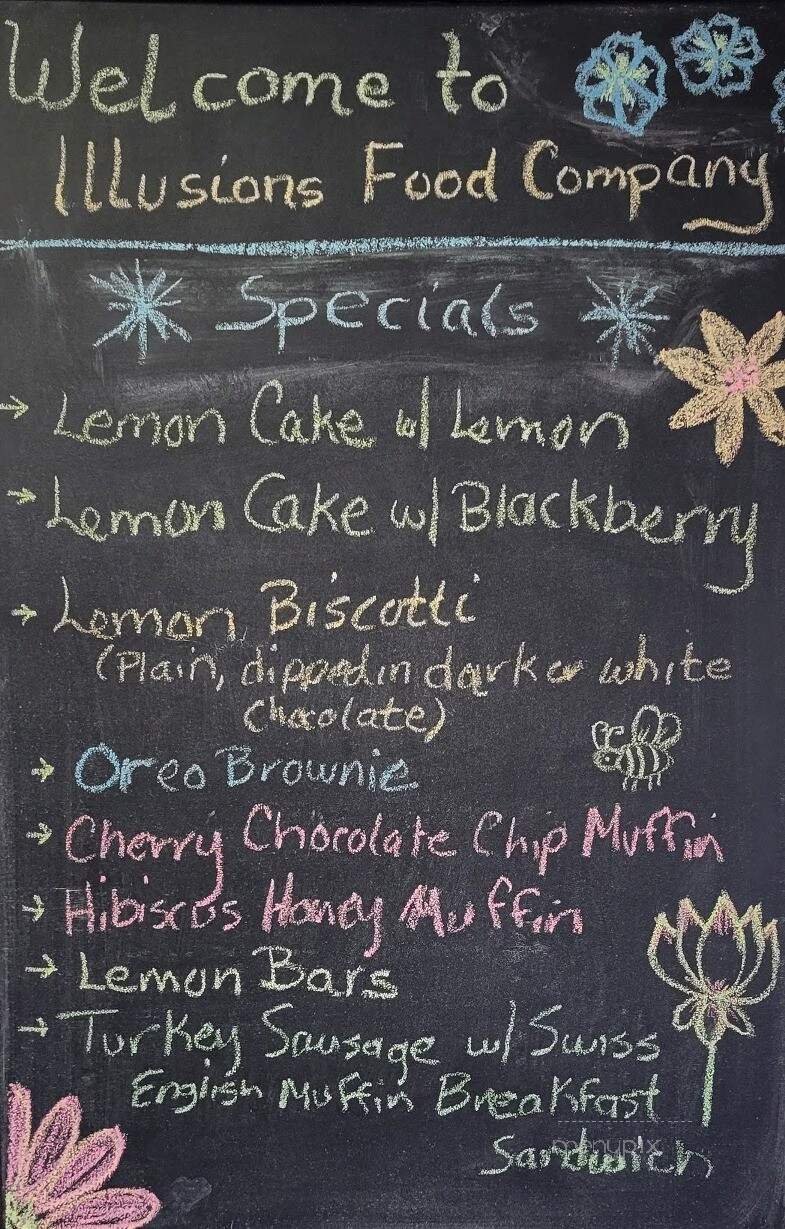 Welcome to
Illusions Food Company
Specials
→ Lemon Cake w/ Lemon
→ Lemon Cake w/ Blackberry
→ Lemon Biscotti
(Plain, dipped in dark or white
chocolate)
→ Oreo Brownie
→ Cherry Chocolate Chip Muffin
→ Hibiscus Honey Muffin
→ Lemon Bars
→ Turkey Sausage w/ Swiss
English Muffin Breakfast
Sandwich
menupix